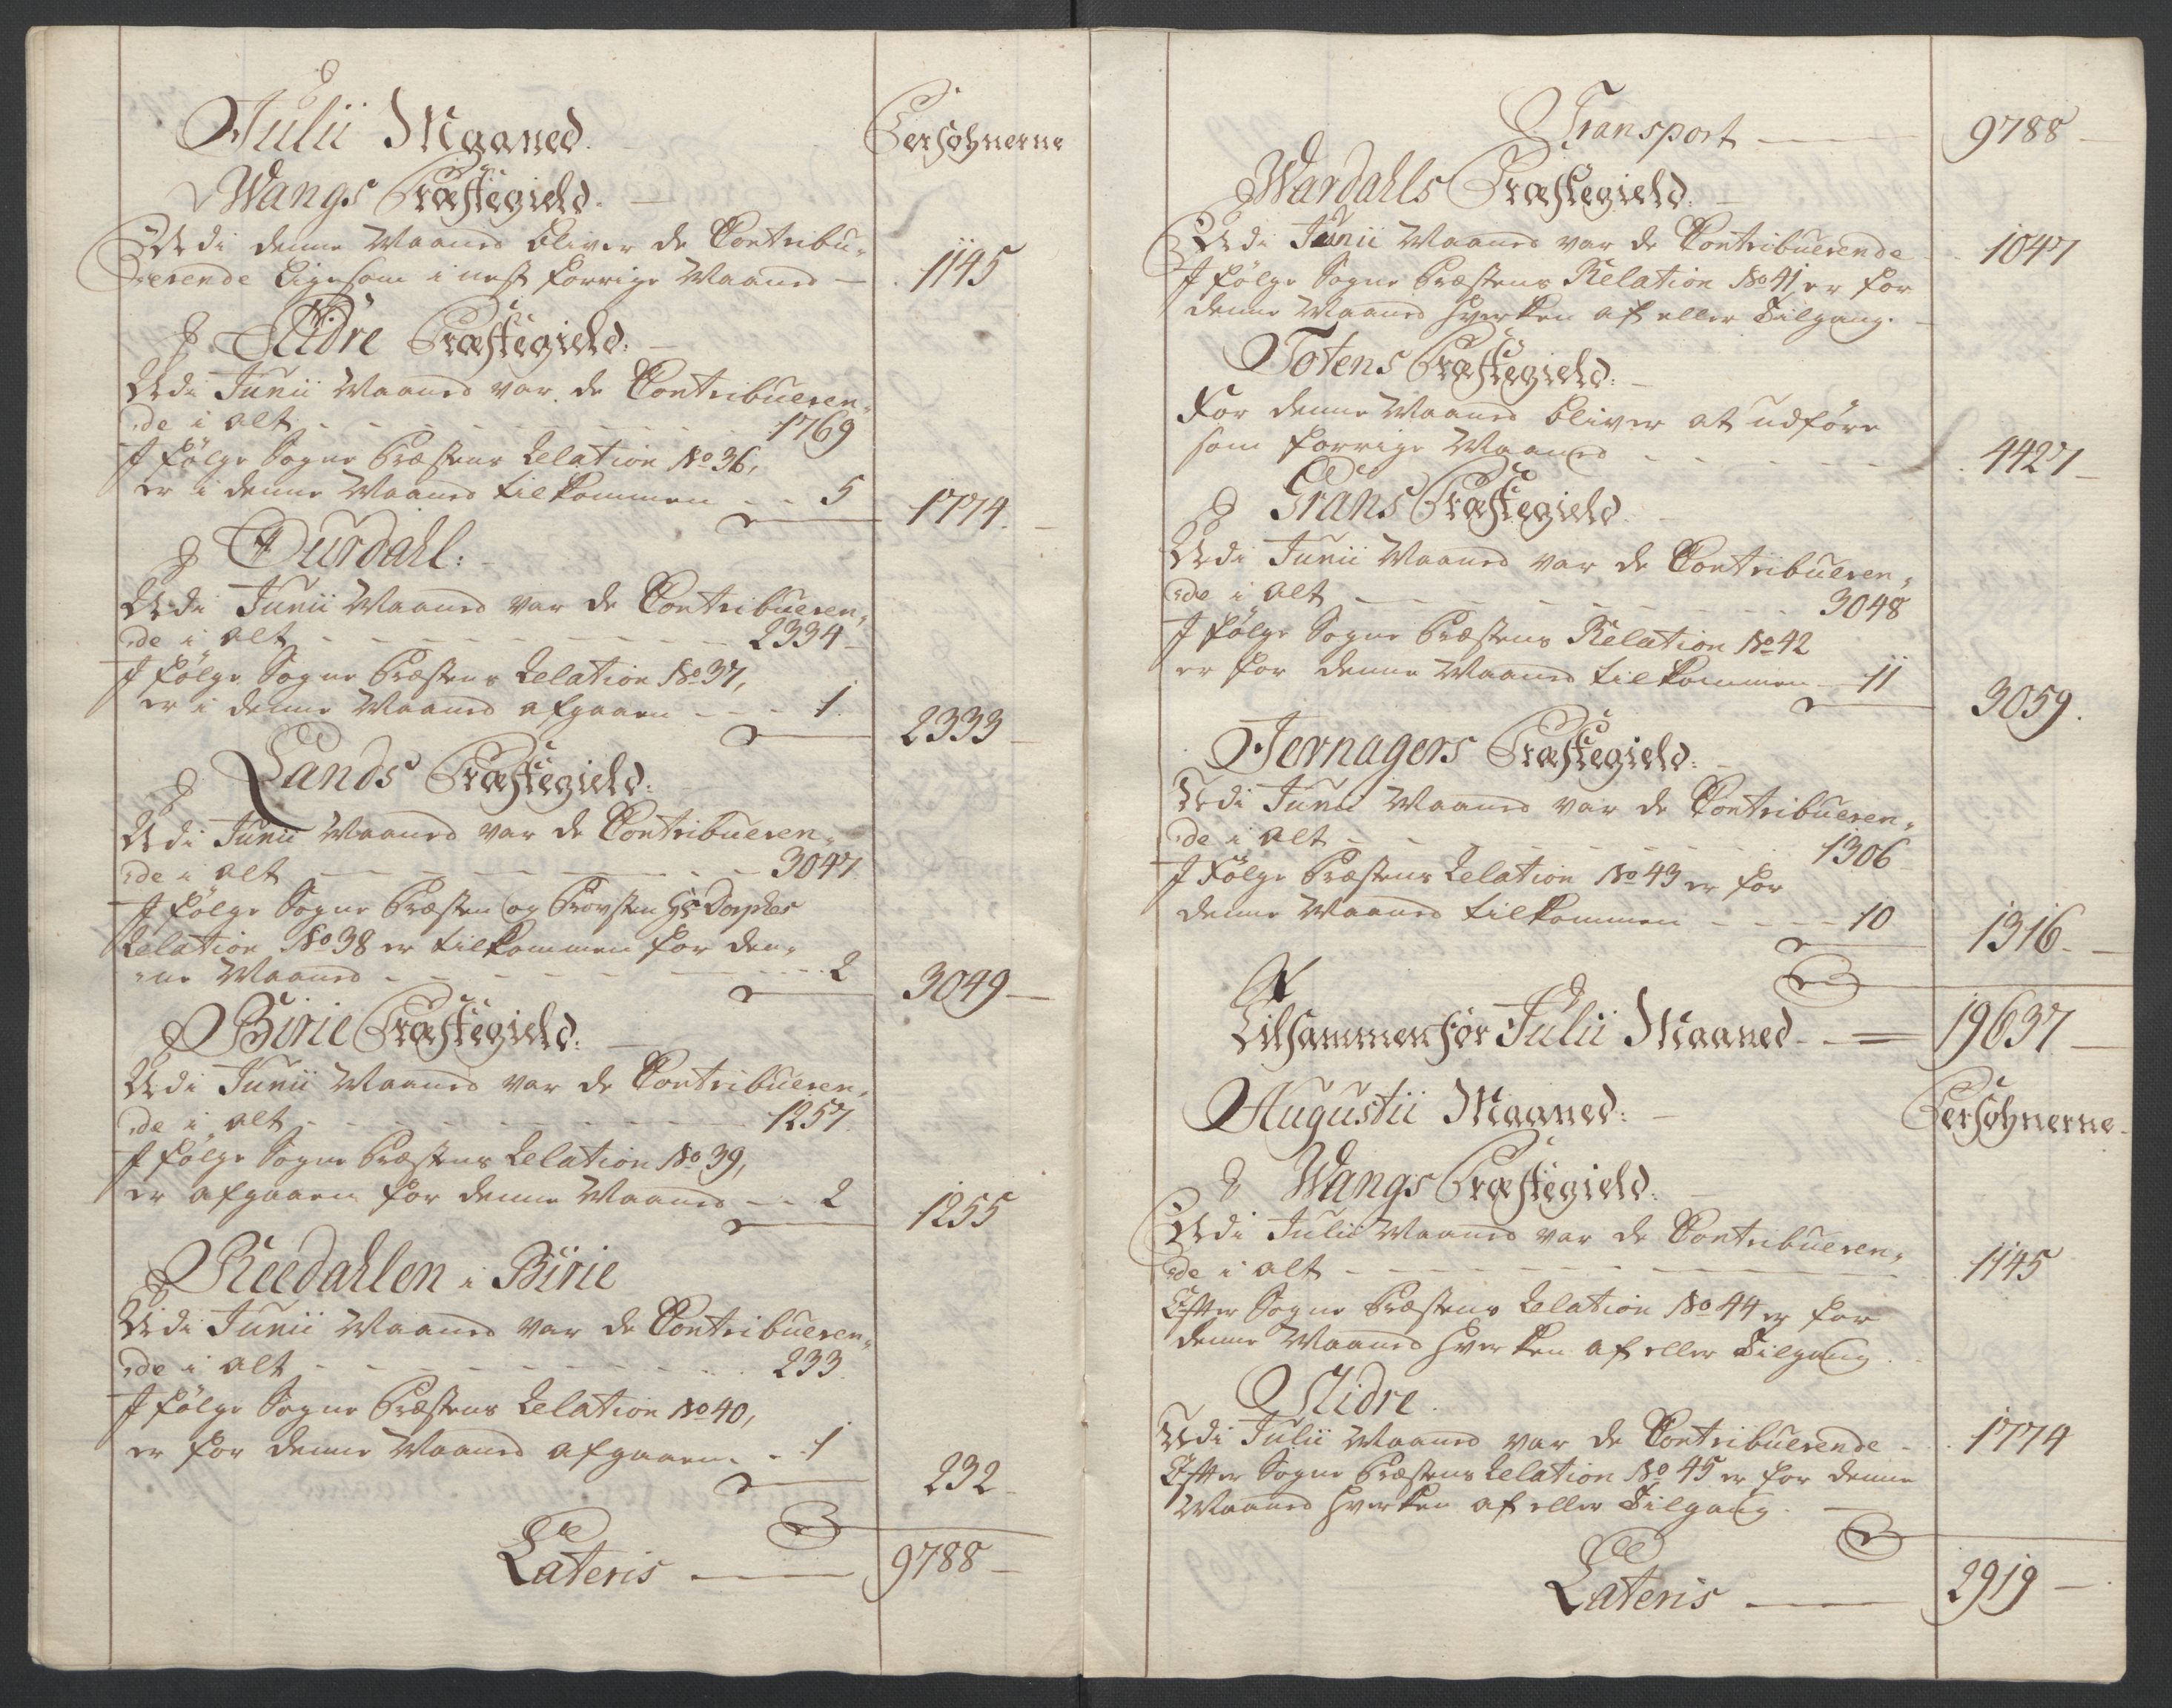 Julii Maaned. Persohnerne
Wangs Præstegield.
Udi denne Maaned bliver de Contribu-
erende ligesom i nest forrige Maaned — 1145
Slidre Præstegield.
Udi Junii Maaned var de Contribueren-
de i alt - - - 1769
I følge Sogne Præstens Relation No 36,
er i denne Maaned tilkommen - - 5 1774.
Ourdahl.
Udi Junii Maaned var de Contribueren-
de i alt - - - 2334
I følge Sogne Præstens Relation No 37,
er i denne Maaned afgaaen - - - 1. 2333
Lands Præstegield.
Udi Junii Maaned var de Contribueren-
de i alt - - - 3047
I følge Sogne Præsten og Provsten Hr Dorphes
Relation No 38 er tilkommen for den-
ne Maaned - - - 2 3049
Birie Præstegield.
Udi Junii Maaned var de Contribueren-
de i alt - - - 1257.
I følge Sogne Præstens Relation No 39,
er afgaaen for denne Maaned - - 2 1255
Reedahlen i Birie
Udi Junii Maaned var de Contribueren-
de i alt - - - 233.
I følge Sogne Præstens Relation No 40,
er for denne Maaned afgaaen. - 1 232
Lateris — 9788
Transport — 9788
Wardahls Præstegield.
Udi Junii Maaned var de Contribuerende - 1047
I følge Sogne Præstens Relation No 41 er for
denne Maaned hverken af eller Tilgang.
Totens Præstegield.
For denne Maaned bliver at udføre
som forrige Maaned - - - 4427
Grans Præstegield
Udi Junii Maaned var de Contribueren-
de i alt - - - 3048
I følge Sogne Præstens Relation No 42
er for denne Maaned tilkommen - 11 3059.
Jernagers Præstegield.
Udi Junii Maaned var de Contribueren-
de i alt - - - 1306
I Følge Præstens Relation No 43 er for
denne Maaned tilkommen - - - 10 1316.
Tilsammen för Julii Maaned - 19637
Augustii Maaned. Persohnerne
Wangs Præstegield.
Udi Julii Maaned var de Contribueren-
de i alt - - - 1145
Efter Sogne Præstens Relation No 44 er for
denne Maaned hverken af eller Tilgang.
Slidre.
Udi Julii Maaned var de Contribuerende - 1774
Efter Sogne Præstens Relation No 45 er for denne
Maaned hverken af eller Tilgang.
Lateris — 2919